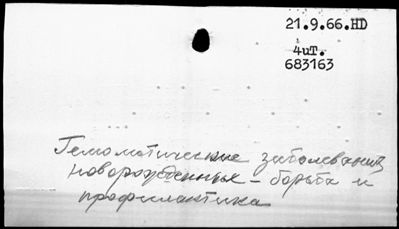 21.9.66.HD
4иТ.
683163
Гемолитические заболевания
новорожденных - борьба и
профилактика